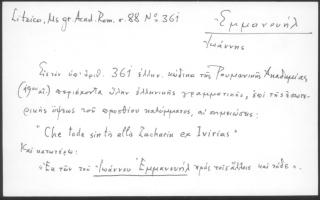 Litzica, Ms gr Acad. Rom. σ. 88 Nº 361
Ἐμμανουήλ
Ἰωάννης
Εἰς τὸν ὑπ' ἀριθ. 361 ἑλλην. κώδικα τῆς Ρουμανικῆς Ἀκαδημίας
περιέχοντα ὕλην ἑλληνικῆς γραμματικῆς, ἐπὶ τῆς ἐσωτε-
ρικῆς ὄψεως τοῦ προσθίου καλύμματος, αἱ σημειώσεις:
"Che tade sinto alla Zacharia ex Ivirias"
Καὶ κατωτέρω:
«Ἐκ τῶν τοῦ Ἰωάννου Ἐμμανουήλ πρὸς τοῖς ἄλλοις καὶ τόδε».